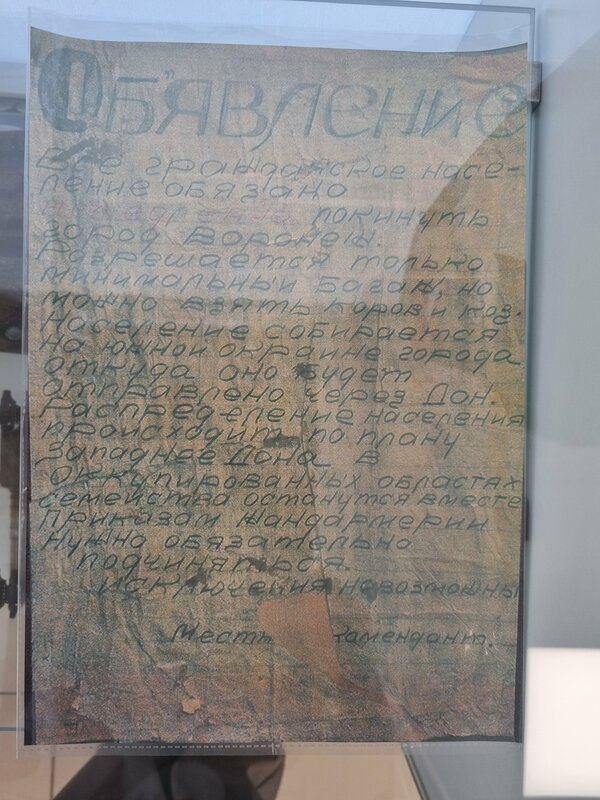 Об'явление
Все гражданское насе-
ление обязано
немедленно покинуть
город Воронеж.
Разрешается только
минимальный багаж, но
можно взять коров и коз.
Население собирается
на южной окраине города
откуда оно будет
отправлено через Дон.
Распределение населения
происходит по плану
Западнее Дона в
оккупированных областях
семейства останутся вместе
Приказам жандармерии
нужно обязательно
подчиняться.
Исключения невозможны
Комендант.